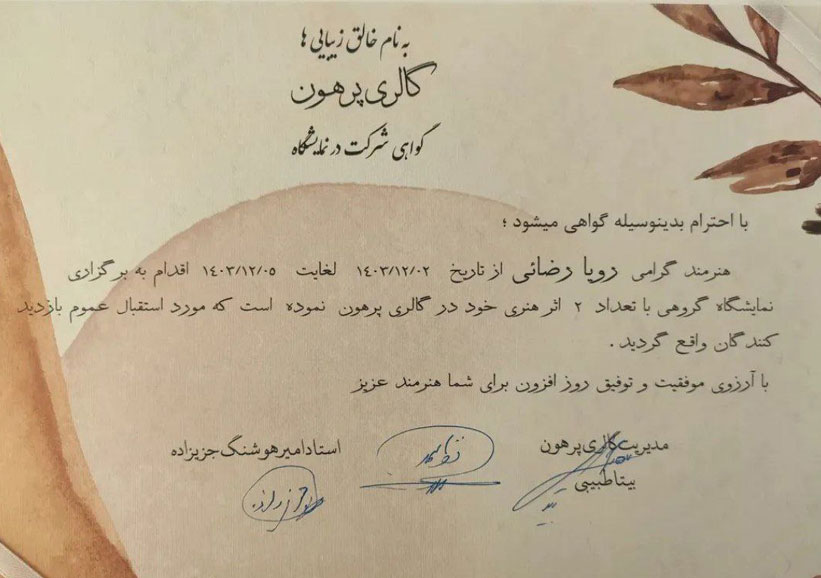 به نام خالق زیبایی ها
گالری پرهون
گواهی شرکت در نمایشگاه
با احترام بدینوسیله گواهی میشود ؛
هنرمند گرامی رویا رضائی از تاریخ ۱۴۰۳/۱۲/۰۲ لغایت ۱۴۰۳/۱۲/۰۵ اقدام به برگزاری
نمایشگاه گروهی با تعداد ۲ اثر هنری خود در گالری پرهون نموده است که مورد استقبال عموم بازدید
کنندگان واقع گردید .
با آرزوی موفقیت و توفیق روز افزون برای شما هنرمند عزیز
مدیریت گالری پرهون استاد امیرهوشنگ جزیزاده
بیتا طبیبی